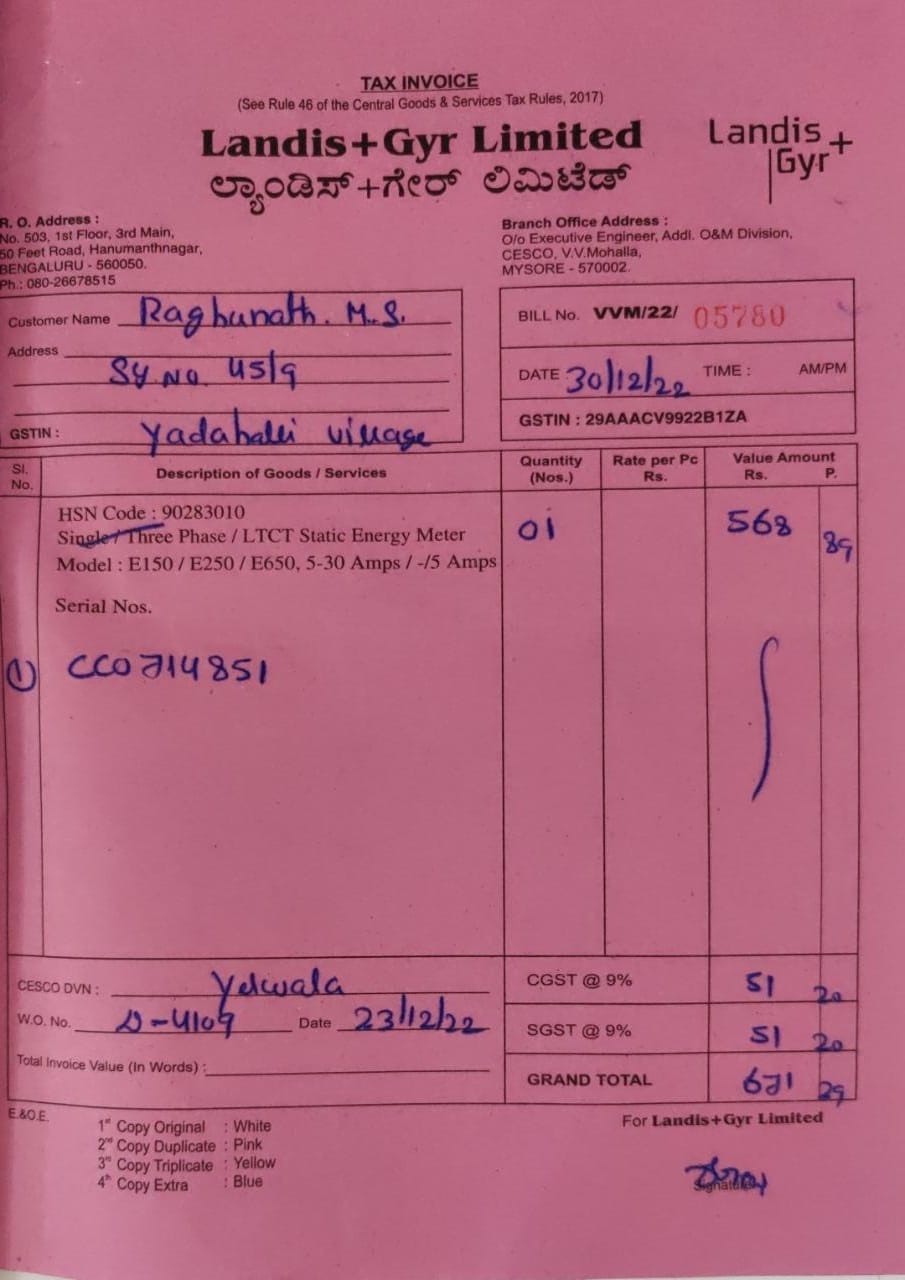 TAX INVOICE
(See Rule 46 of the Central Goods & Services Tax Rules, 2017)
Landis+Gyr Limited
ಲ್ಯಾಂಡಿಸ್+ಗೇರ್ ಲಿಮಿಟೆಡ್
Landis
Gyr+
R. O. Address :
No. 503, 1st Floor, 3rd Main,
50 Feet Road, Hanumanthnagar,
BENGALURU - 560050.
Ph.: 080-26678515
Branch Office Address :
O/o Executive Engineer, Addl. O&M Division,
CESCO, V.V.Mohalla,
MYSORE - 570002.
Customer Name Raghunath. M.S.
Address
Sy No. 45/9
GSTIN : Yadahalli Village
BILL No. VVM/22/ 05780
DATE 30/12/22 TIME : AM/PM
GSTIN : 29AAACV9922B1ZA
Sl. No. Description of Goods / Services Quantity (Nos.) Rate per Pc Rs. Value Amount Rs. P.
HSN Code : 90283010
Single / Three Phase / LTCT Static Energy Meter 01 568 89
Model : E150 / E250 / E650, 5-30 Amps / -/5 Amps
Serial Nos.
① CC0714851
CESCO DVN : Yelwala
W.O. No. D-4109 Date 23/12/22
Total Invoice Value (In Words) :
CGST @ 9% 51 20
SGST @ 9% 51 20
GRAND TOTAL 671 29
E.&O.E.
1st Copy Original : White
2nd Copy Duplicate : Pink
3rd Copy Triplicate : Yellow
4th Copy Extra : Blue
For Landis+Gyr Limited
Signature